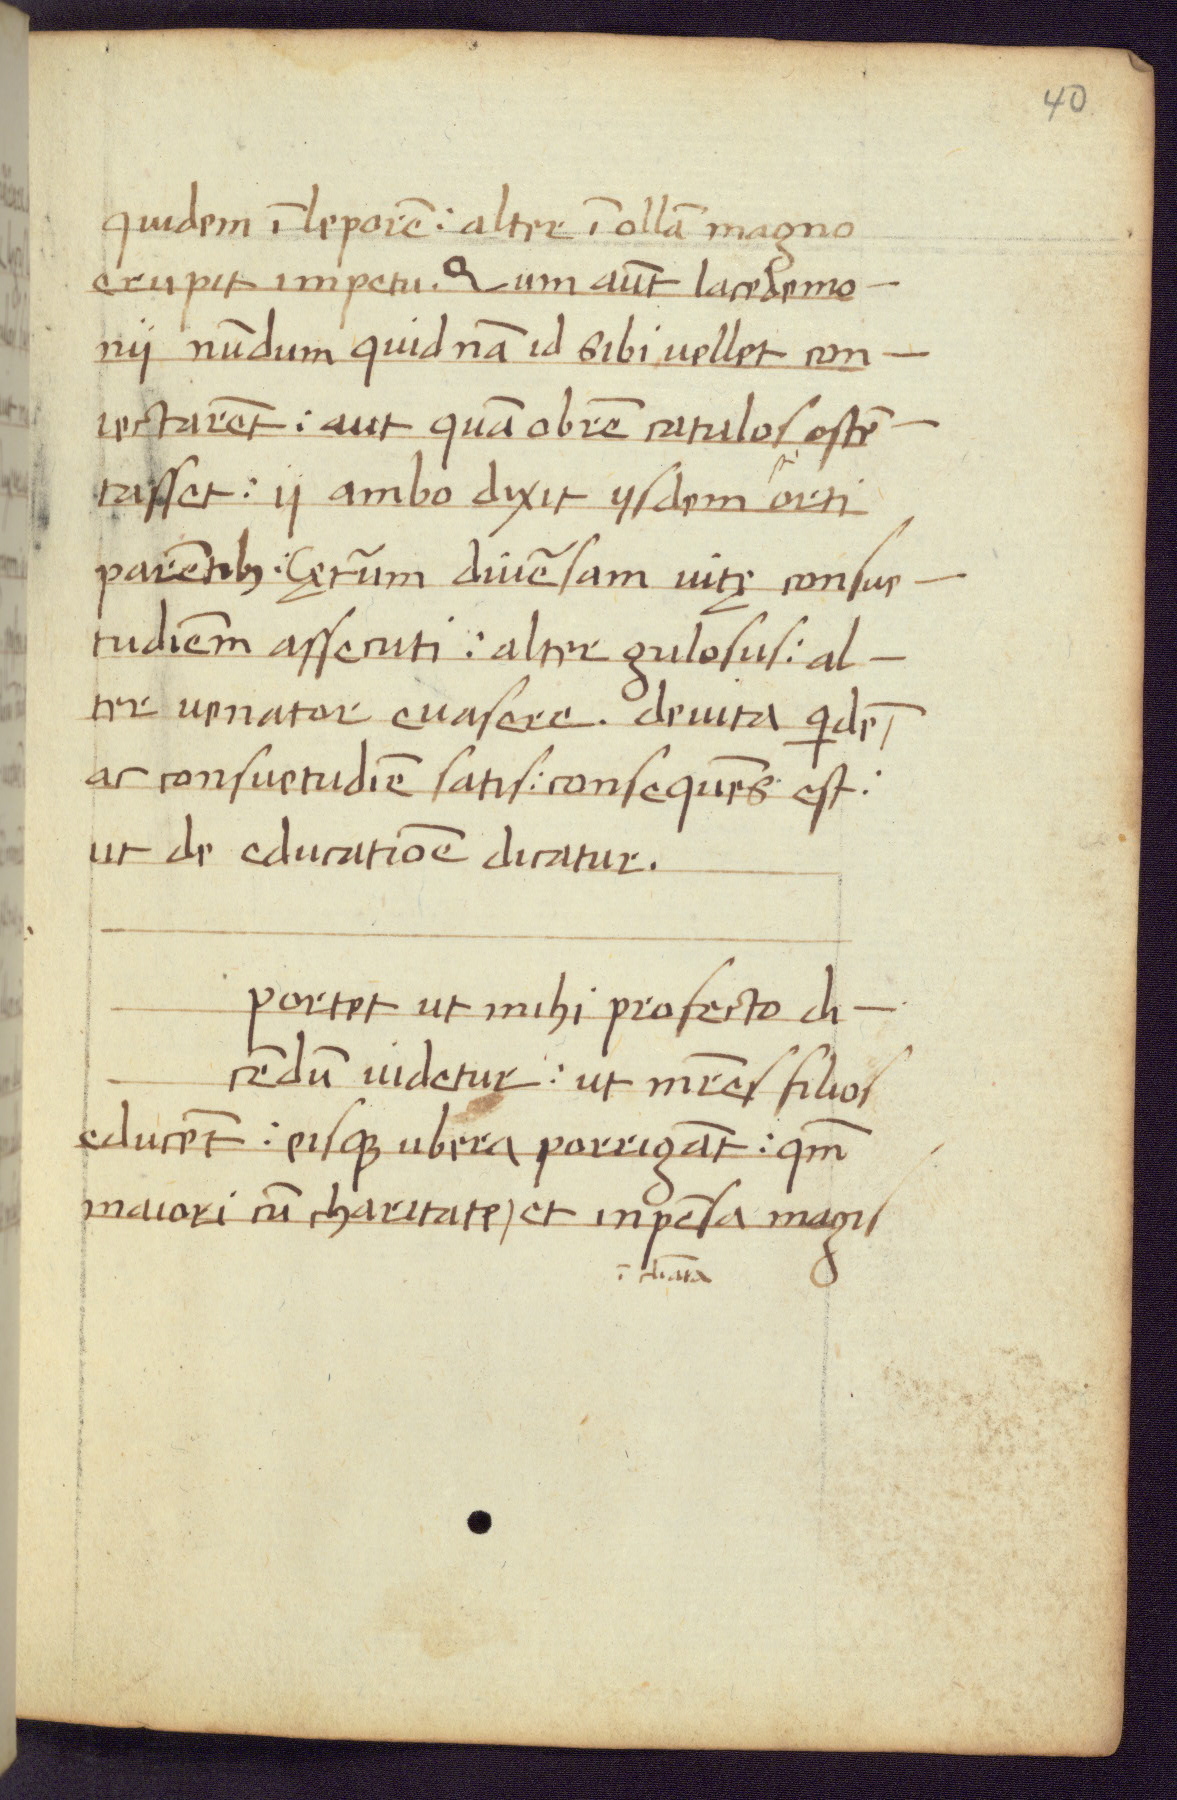 40
quidem ī leporē : alter ī ollā magno
erupit impetu. Qum aūt lacedemo-
nij nūdum quid nā id sibi uellet con-
iectarēt : aut quā obrē catulos ostē-
tasset : ij ambo dixit ijsdem orti
parētib; : Cęrūm diuēsam uitę consue-
tudiēm assecuti : alter gulosus : al-
ter uenator euasere. de uita qͥdē
ac consuetudiē satis : consequēs est :
ut de educatiōe dicatur.
portet ut mihi profecto di-
cēdū uidetur : ut mr̄es filios
educēt : eisqꝫ ubera porrigāt : qm̄
maiori cū charitate, et inpēsa magis